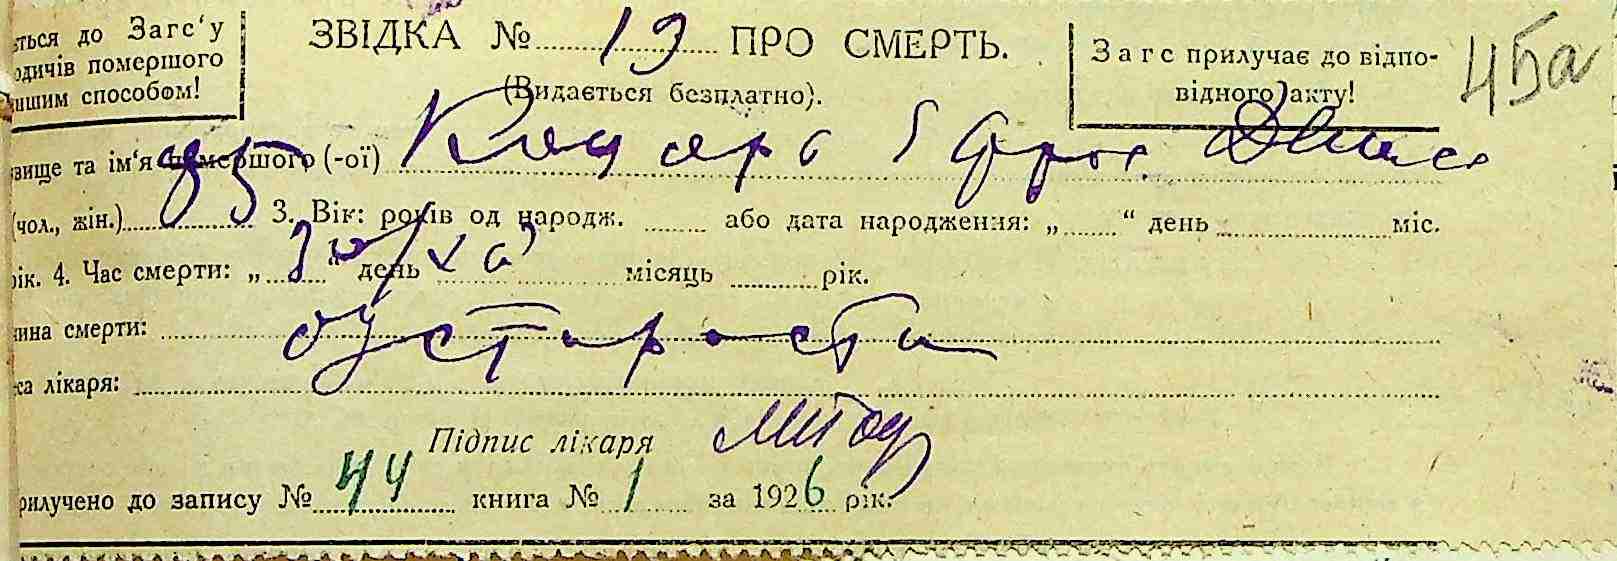 ться до Загс‘у
одичів помершого
ншим способом!
ЗВІДКА № 19 ПРО СМЕРТЬ.
(Видається безплатно).
Загс прилучає до відпо-
відного акту!
45а
вище та ім‘я помершого (-ої)
(чол., жін.) 3. Вік: років од народж. або дата народження: „ “ день міс.
рік. 4. Час смерти: „ “ день місяць рік.
ина смерти: од старости
са лікаря:
Підпис лікаря
рилучено до запису № 44 книга № 1 за 1926 рік.